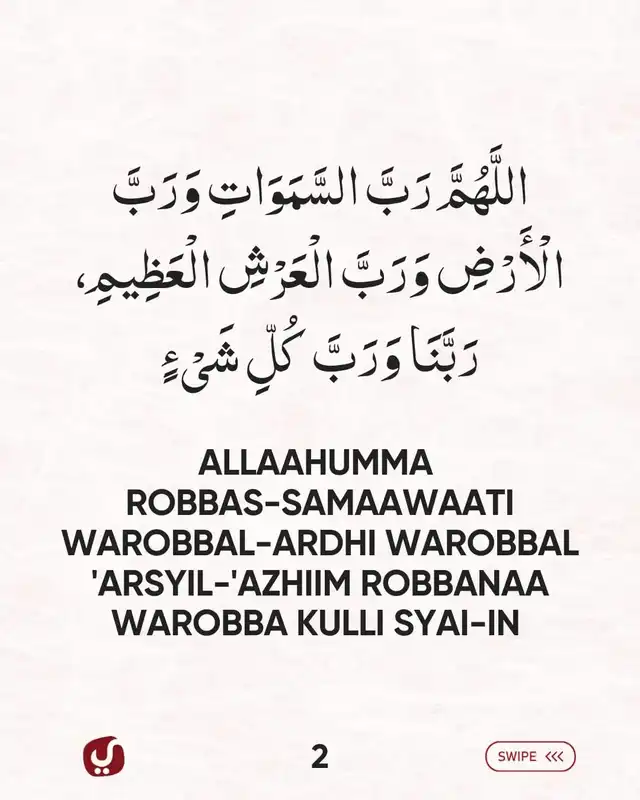 اللَّهُمَّ رَبَّ السَّمَوَاتِ وَرَبَّ
الْأَرْضِ وَرَبَّ الْعَرْشِ الْعَظِيمِ،
رَبَّنَا وَرَبَّ كُلِّ شَىْءٍ
ALLAAHUMMA
ROBBAS-SAMAAWAATI
WAROBBAL-ARDHI WAROBBAL
'ARSYIL-'AZHIIM ROBBANAA
WAROBBA KULLI SYAI-IN
2
SWIPE <<<